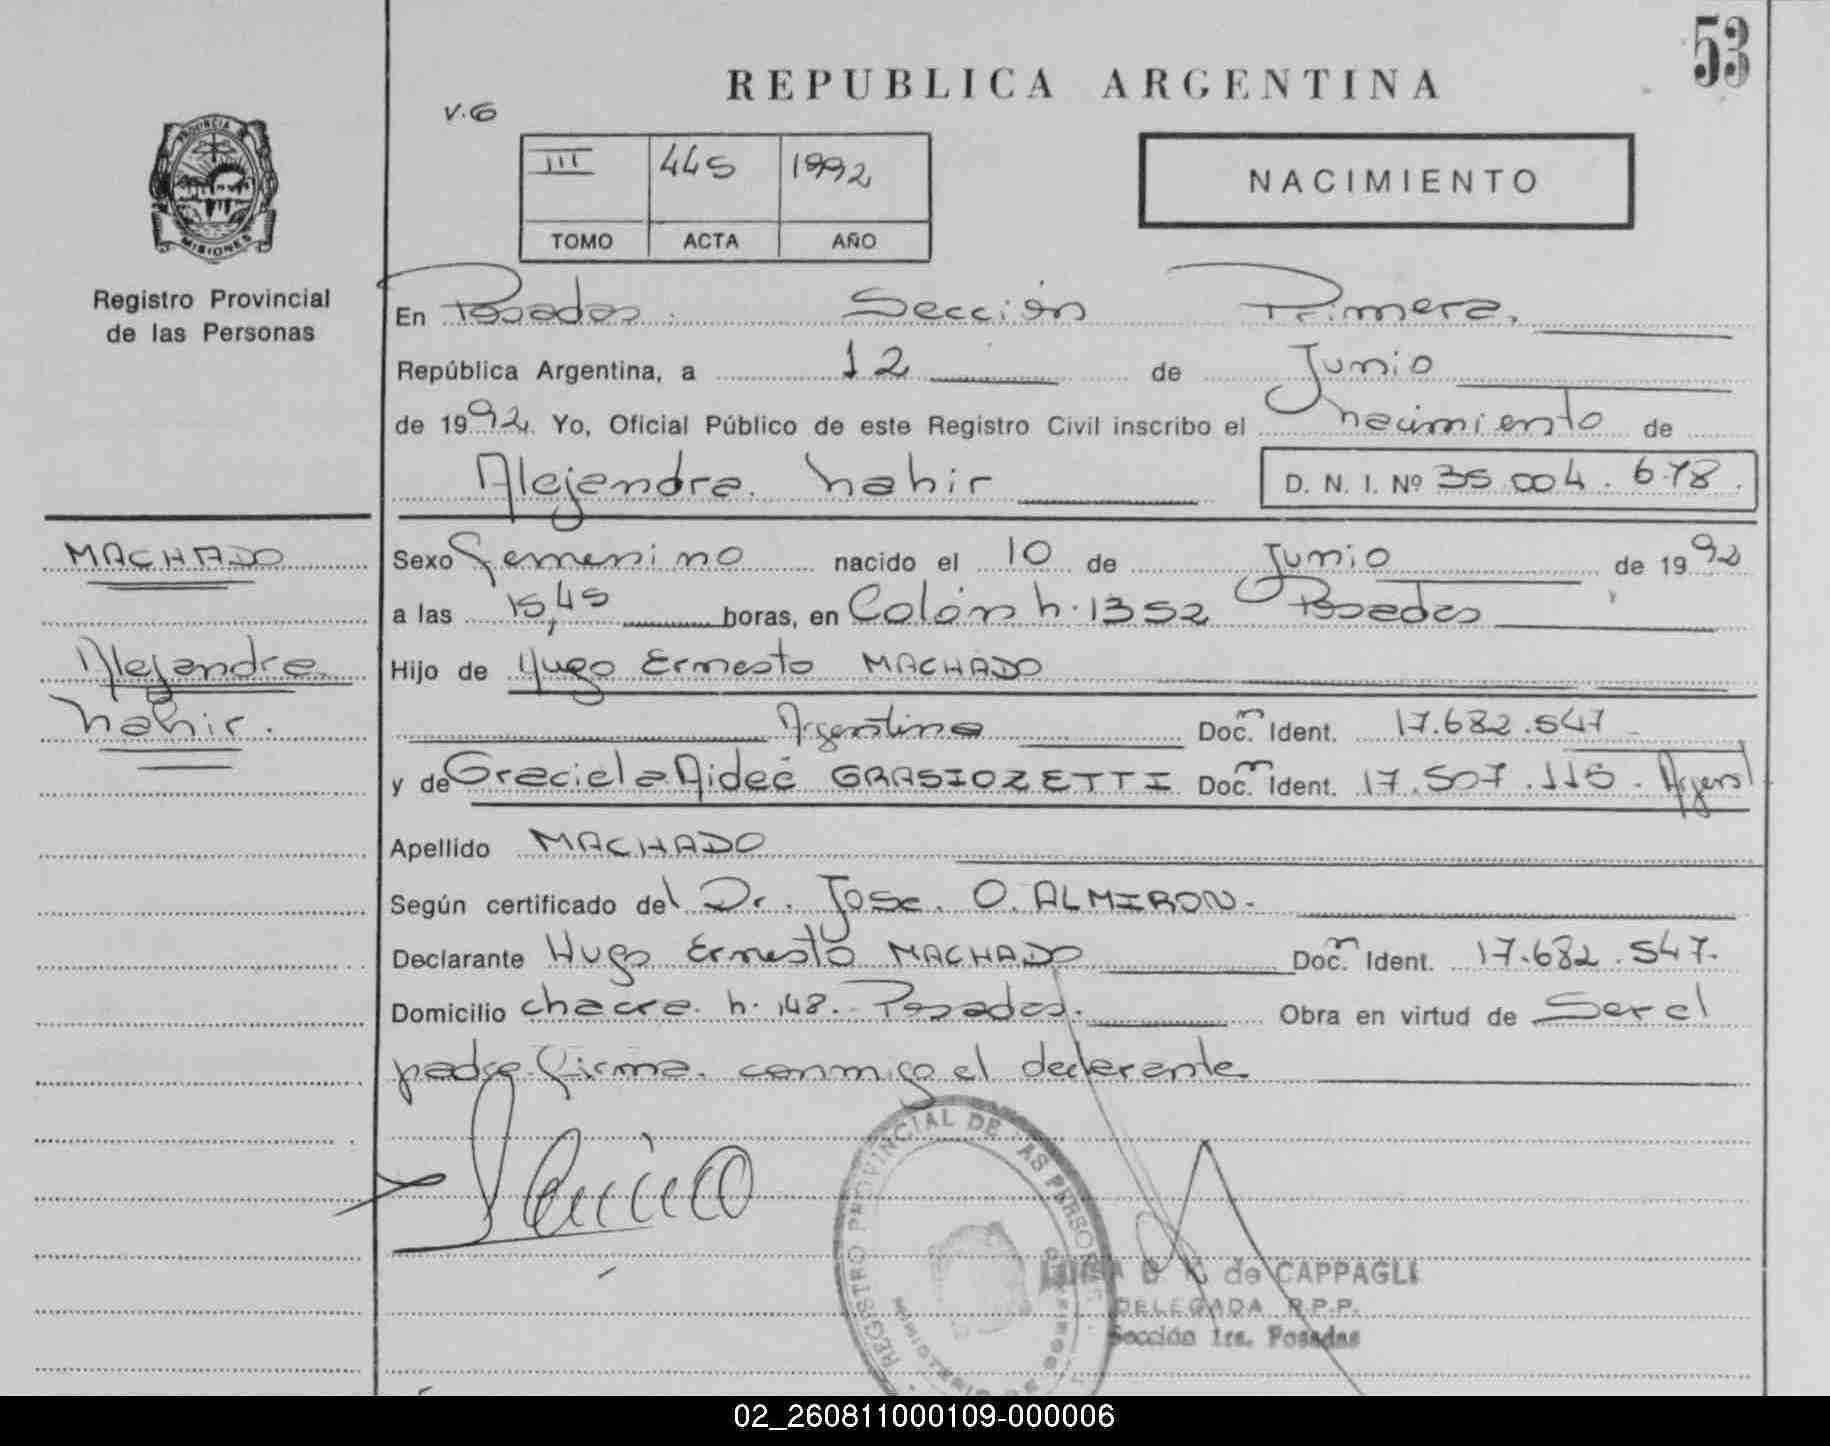 53
REPUBLICA ARGENTINA
V.6
III 445 1992
TOMO ACTA AÑO
NACIMIENTO
PROVINCIA DE
MISIONES
Registro Provincial
de las Personas
En Posadas. Sección Primera.
República Argentina, a 12 de Junio
de 1992. Yo, Oficial Público de este Registro Civil inscribo el nacimiento de
Alejandra Nahir D. N. I. Nº 35.004.678.
MACHADO
Alejandra
Nahir.
Sexo Femenino nacido el 10 de Junio de 1992
a las 15,45 horas, en Colón N. 1352 Posadas
Hijo de Hugo Ernesto MACHADO
Argentino Doc.m Ident. 17.682.547
y de Graciela Aideé GRASIOZETTI Doc.m Ident. 17.507.115. Argent
Apellido MACHADO
Según certificado del Dr. Jose O. ALMIRON.
Declarante Hugo Ernesto MACHADO Doc.m Ident. 17.682.547.
Domicilio chacra N. 148. Posadas. Obra en virtud de Ser el
padre firma conmigo el declarante
REGISTRO PROVINCIAL DE LAS PERSONAS
MINISTERIO DE GOBIERNO
de CAPPAGLI
DELEGADA R.P.P.
Sección 1ra. Posadas
02_260811000109-000006